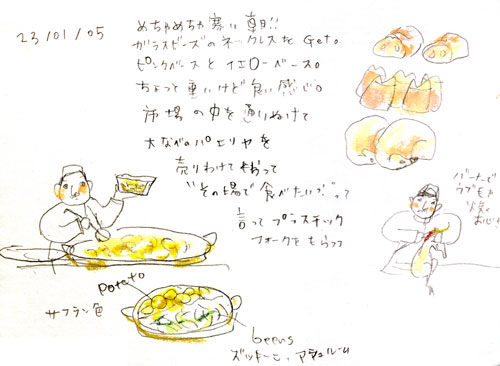 23/01/05
めちゃめちゃ寒い朝!!
ガラスビーズのネックレスを Get。
ピンクベースとイエローベース。
ちょっと重いけど良い感じ。
市場の中を通りぬけて
大なべのパエリヤを
売りわけてもらって
"その場で食べたいっ!"って
言ってプラスチック
フォークをもらって
バーナーで
サフラン色
potato
beens
ズッキーニ、マシュルーム